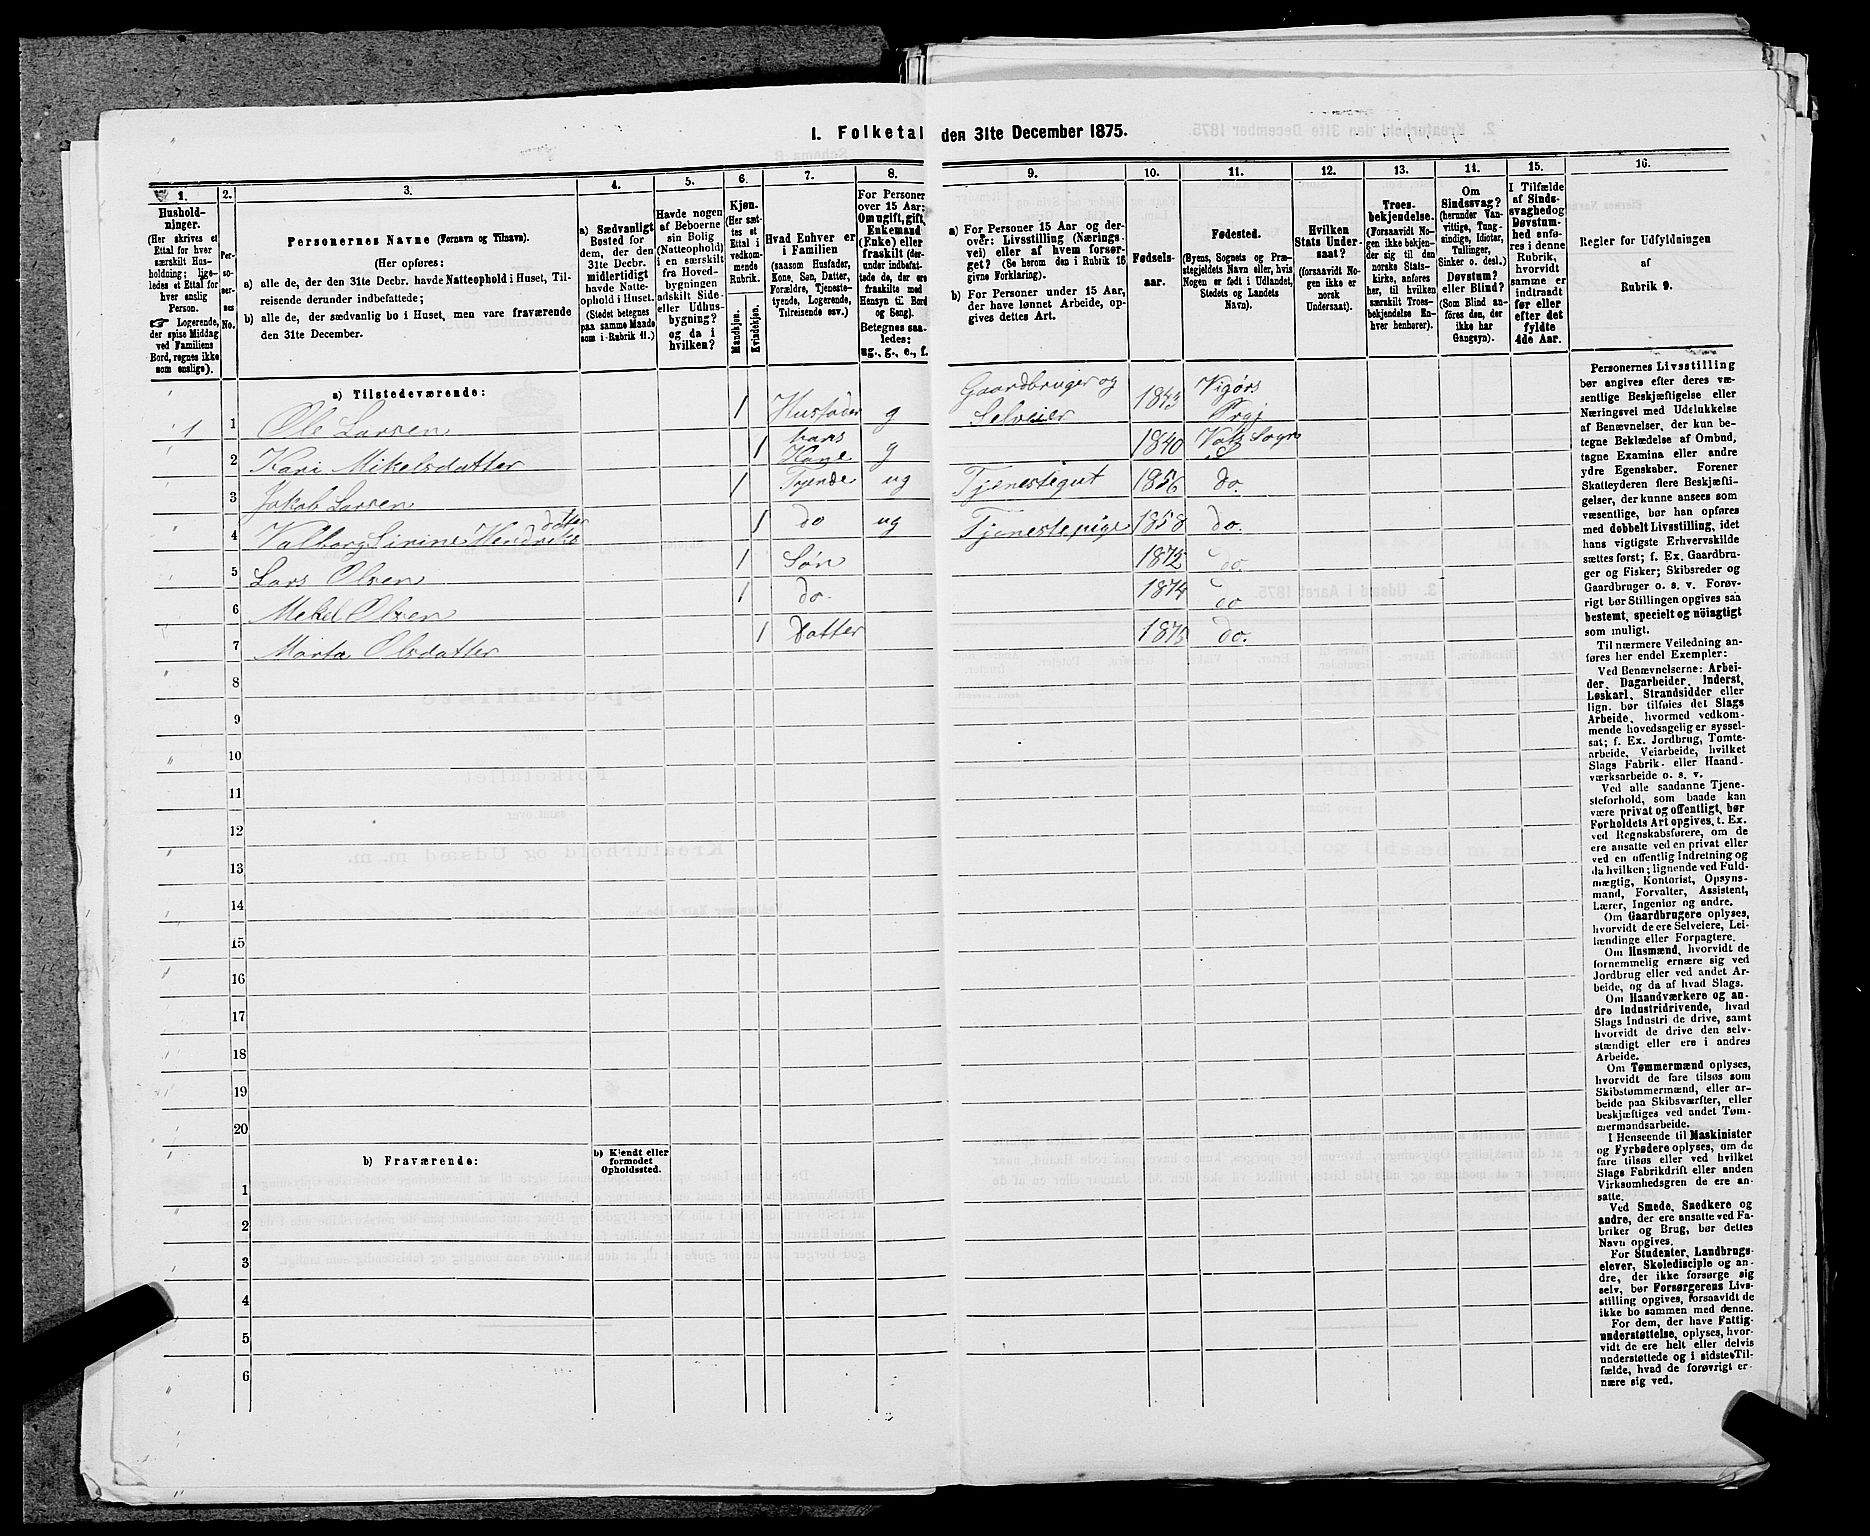 1. Folketal den 31te December 1875.
1.
Hushold-
ninger.
(Her skrives et
Ettal for hver
særskilt Hus-
holdning; lige-
ledes et Ettal for
hver enslig
Person.
☞ Logerende,
der spise Middag
ved Familiens
Bord, regnes ikke
som enslige).
2.
Per-
so-
ner-
nes
No.
3.
Personernes Navne (Fornavn og Tilnavn).
(Her opføres:
a) alle de, der den 31te Decbr. havde Natteophold i Huset, Til-
reisende derunder indbefattede;
b) alle de, der sædvanlig bo i Huset, men vare fraværende
den 31te December.
4.
a) Sædvanligt
Bosted for
dem, der den
31te Decbr.
midlertidigt
havde Natte-
ophold i Huset.
(Stedet betegnes
paa samme Maade
som i Rubrik 11.)
5.
Havde nogen
af Beboerne
sin Bolig
(Natteophold)
i en særskilt
fra Hoved-
bygningen
adskilt Side-
eller Udhus-
bygning?
og da i
hvilken?
6.
Kjøn.
(Her sæt-
tes et
Ettal i
vedkom-
mende
Rubrik.
Mandkjøn.
Kvindekjøn.
7.
Hvad Enhver er
i Familien
(saasom Husfader,
Kone, Søn, Datter,
Forældre, Tjeneste-
tyende, Logerende,
Tilreisende osv.)
8.
For Personer
over 15 Aar:
Om ugift, gift,
Enkemand
(Enke) eller
fraskilt (der-
under indbefat-
tede de, der ere
fraskilte med
Hensyn til Bord
og Seng).
Betegnes saa-
ledes:
ug., g., e., f.
9.
a) For Personer 15 Aar og der-
over: Livsstilling (Nærings-
vei) eller af hvem forsør-
get? (Se herom den i Rubrik 16
givne Forklaring).
b) For Personer under 15 Aar,
der have lønnet Arbeide, op-
gives dettes Art.
10.
Fødsels-
aar.
11.
Fødested.
(Byens, Sognets og Præ-
stegjeldets Navn eller, hvis
Nogen er født i Udlandet,
Stedets og Landets
Navn).
12.
Hvilken
Stats Under-
saat?
(forsaavidt No-
gen ikke er
norsk
Undersaat).
13.
Troes-
bekjendelse.
(Forsaavidt No-
gen ikke bekjen-
der sig til den
norske Stats-
kirke, anføres
her, til hvilken
særskilt Troes-
bekjendelse En-
hver henhører).
14.
Om
Sindssvag?
(herunder Van-
vittige, Tung-
sindige, Idioter,
Tullinger,
Sinker o. desl.)
Døvstum?
eller Blind?
(Som Blind an-
føres den, der
ikke har
Gangsyn).
15.
I Tilfælde
af Sinds-
svaghed og
Døvstum-
hed anfø-
res i denne
Rubrik,
hvorvidt
samme er
indtraadt
før eller
efter det
fyldte
4de Aar.
16.
Regler for Udfyldningen
af
Rubrik 9.
a) Tilstedeværende:
1 1 Ole Larsen 1 Husfader g Gaardbruger og Selveier 1843 Vigørs Prgj
2 Kari Mikelsdatter 1 hans Kone g 1840 Vats Sogn
3 Jakob Larsen 1 Tyende ug Tjenestegut 1856 do.
4 Valborg Sirine Hendriksdatter 1 do ug Tjenestepige 1858 do.
5 Lars Olsen 1 Søn 1872 do.
6 Mekel Olsen 1 do. 1874 do
7 Marta Olsdatter 1 Datter 1875 do.
8
9
10
11
12
13
14
15
16
17
18
19
20
b) Fraværende:
b) Kjendt eller
formodet
Opholdssted.
1
2
3
4
5
6
Personernes Livsstilling
bør angives efter deres væ-
sentlige Beskjæftigelse eller
Næringsvei med Udelukkelse
af Benævnelser, der kun be-
tegne Beklædelse af Ombud,
tagne Examina eller andre
ydre Egenskaber. Forener
Skatteyderen flere Beskjæfti-
gelser, der kunne ansees som
væsentlige, bør han opføres
med dobbelt Livsstilling, idet
hans vigtigste Erhvervskilde
sættes først; f. Ex. Gaardbru-
ger og Fisker; Skibsreder og
Gaardbruger o. s. v. Forøv-
rigt bør Stillingen opgives saa
bestemt, specielt og nöiagtigt
som muligt.
Til nærmere Veiledning an-
føres her endel Exempler:
Ved Benævnelserne: Arbei-
der, Dagarbeider, Inderst,
Løskarl, Strandsidder eller
lign. bør tilføies det Slags
Arbeide, hvormed vedkom-
mende hovedsagelig er syssel-
sat; f. Ex. Jordbrug, Tømte-
arbeide, Veiarbeide, hvilket
Slags Fabrik- eller Haand-
værksarbeide o. s. v.
Ved alle saadanne Tjene-
steforhold, som baade kan
være privat og offentligt, bør
Forholdets Art opgives, t. Ex.
ved Regnskabsførere, om de
ere ansatte ved en privat eller
ved en offentlig Indretning og
da hvilken; lignende ved Fuld-
mægtig, Kontorist, Opsyns-
mand, Forvalter, Assistent,
Lærer, Ingeniør og andre.
Om Gaardbrugere oplyses,
hvorvidt de ere Selveiere, Lei-
lændinge eller Forpagtere.
Om Husmænd, hvorvidt de
fornemmelig ernære sig ved
Jordbrug eller ved andet Ar-
beide, og da af hvad Slags.
Om Haandværkere og an-
dre Industridrivende, hvad
Slags Industri de drive, samt
hvorvidt de drive den selv-
stændigt eller ere i andres
Arbeide.
Om Tømmermænd oplyses,
hvorvidt de fare tilsøs som
Skibstømmermænd, eller ar-
beide paa Skibsværfter, eller
beskjæftiges ved andet Tøm-
mermandsarbeide.
I Henseende til Maskinister
og Fyrbødere oplyses, om de
fare tilsøs eller ved hvilket
Slags Fabrikdrift eller anden
Virksomhedsgren de ere an-
satte.
Ved Smede, Snedkere og
andre, der ere ansatte ved Fa-
briker og Brug, bør dettes
Navn opgives.
For Studenter, Landbrugs-
elever, Skoledisciple og an-
dre, der ikke forsørge sig
selv, bør Forsørgerens Livs-
stilling opgives, forsaavidt de
ikke bo sammen med denne.
For dem, der have Fattig-
understøttelse, oplyses, hvor-
vidt de ere helt eller delvis
understøttede og i sidste Til-
fælde, hvad de forøvrigt er-
nære sig ved.